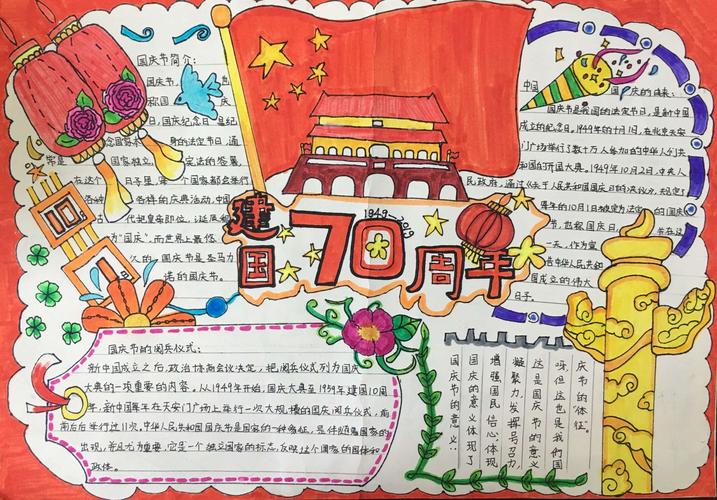 国庆节简介:
国庆节,也
称国 庆
日、国庆纪念日 是纪
念国家本 身的法定节日,通
常是 国家独立、 宪法的签署,
在这个 日子里,每一个国家都会举行
各种 各样的庆典活动,中国
古 代把皇帝即位、诞辰
为“国庆”,而世界上最悠
久的 国庆节是圣马力
诺的国庆节。
中国 国庆的由来:
国庆节是我国的法定节日,是新中国
成立的纪念日,1949年的十月1日,在北京天安
门广场举行了数十万人参加的中华人民共
和国的开国大典。1949年10月2日,中央人
民政府,通过关于人民共和国国庆日的决议,规定了
每年的10月1日被定为法定的国庆
节,也称国庆日,
一天,作为宣
告中华人民共和
国成立的伟大
日子。
1949—2019
建国70周年
国庆节的阅兵仪式:
新中国成立之后,政治协商会议决定,把阅兵仪式列为国庆
大典的一项重要的内容,从1949年开始,国庆大典至1959年建国10周
年,新中国每年在天安门广场上举行一次大规模的国庆阅兵仪式,前
前后后举行过11次,中华人民共和国国庆节是国家的一种特征,是伴随着国家的
出现,并且尤为重要,它是一个独立国家的标志,反映这个国家的国体和
政体。
国庆节的意义:
国庆的意义体现了
增强国民信心,体现
凝聚力,发挥号召力,
这是国庆节的意义
呀,但这也是我们国
庆节的体征。